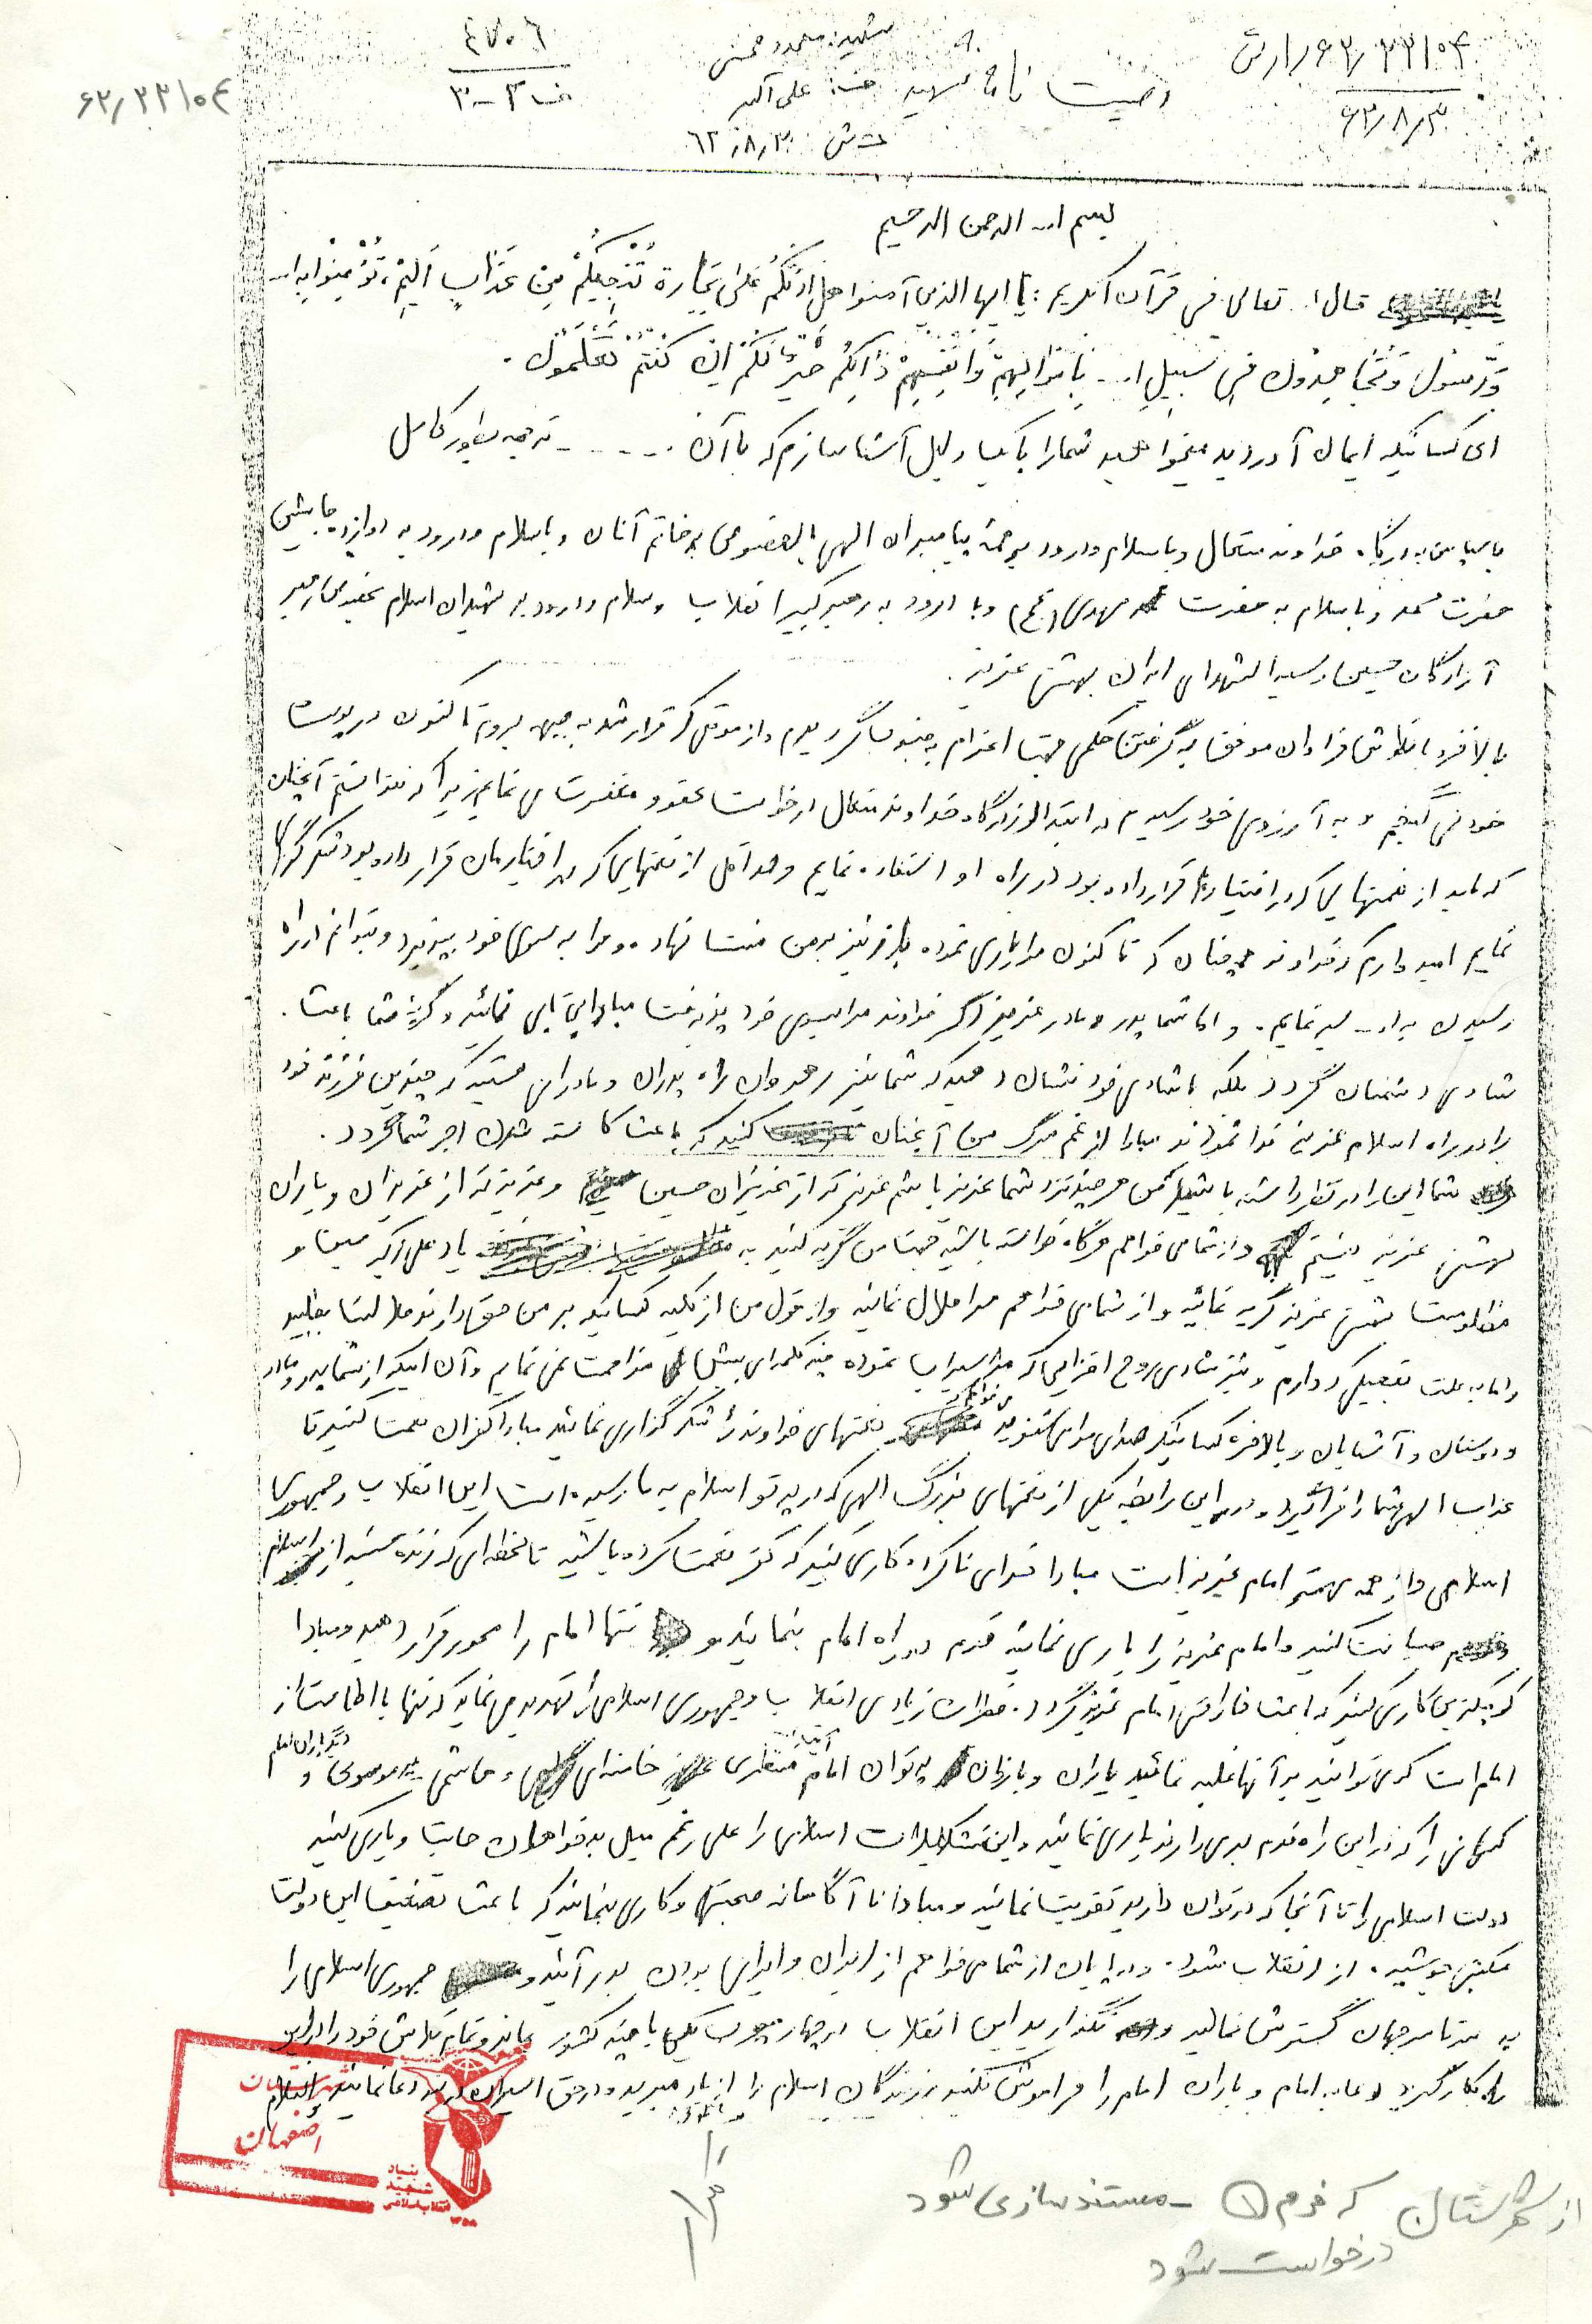 ۶۲٫۲۲۱۰۴
۴۷۰۶
۳-۳
شهید: محمود محسنی
وصیت نامه شهید علی اکبر
ش ۶۲٫۸٫۳۰
۶۲٫۲۲۱۰۴
۶۲٫۸٫۳۰
بسم ا... الرحمن الرحیم
قال ا.. تعالی فی قرآن الکریم: یا ایها الذین آمنوا هل ادلکم علی تجارة تنجیکم من عذاب الیم، تؤمنوا به ا...
و رسول و تجاهدون فی سبیل ا... بأموالهم و انفسهم ذالکم خیر لکم ان کنتم تعلمون.
ای کسانیکه ایمان آوردید میخواهید شمارا با یک دلیل آشنا سازم که با آن ...... ترجمه بطور کامل
با سپاس به درگاه خداوند متعال و با سلام و درود بر همه پیامبران الهی بالخصوص بر خاتم آنان و با سلام و درود به دوازده جانشین
حضرت محمد و با سلام به حضرت مهدی (عج) و با درود به رهبر کبیر انقلاب و سلام و درود بر شهیدان اسلام بخصوص رهبر
آزادگان حسین و سیدالشهدای ایران بهشتی عزیز.
بالاخره با تلاش فراوان موفق به گرفتن حکمی جهت اعزام به جبهه گردیدم و از موقعی که قرار شد به جبهه بروم تا کنون در پوست
خود نمی گنجم و به آرزوی خود رسیدم در ابتدا از درگاه خداوند متعال درخواست عفو و مغفرت می نمایم زیرا که نتوانستم آنچنان
که باید از نعمتهایی که در اختیار ما قرار داده بود در راه او استفاده نمایم و حداقل از نعمتهایی که در اختیارمان قرار داده بود شکرگزاری
نمایم امید دارم که خداوند همچنان که تا کنون مرا یاری نموده باز نیز بر من منت نهاده و مرا به سوی خود بپذیرد و بتوانم در راه
رسیدن به ا... سیر نمایم. و اما شما پدر و مادر عزیز اگر خداوند مرا بسوی خود پذیرفت مبادا بی تابی نمائید و گریه شما باعث
شادی دشمنان گردد بلکه با شادی خود نشان دهید که شما نیز رهروان راه پدران و مادرانی هستید که چندین فرزند خود
را در راه اسلام عزیز فدا نمودند مبادا از غم مرگ من آنچنان کنید که باعث کاسته شدن اجر شما گردد.
شما این را در نظر داشته باشید من هر چند نزد شما عزیز باشم عزیزتر از عزیزان حسین و عزیزتر از عزیزان و یاران
بهشتی عزیز نیستم و از شما می خواهم هرگاه خواسته باشید جهت من گریه کنید به یاد علی اکبر حسین و
مظلومیت بهشتی عزیز گریه نمائید و از شما می خواهم مرا حلال نمائید و از قول من از کلیه کسانیکه بر من حق دارند حلالیت بطلبید
و اما به علت تعجیلی که دارم و نیز شادی روح افزایی که مرا سیراب نموده چند کلمه ای بیش مزاحمت نمی نمایم و آن اینکه از شما پدر و مادر
و دوستان و آشنایان و بالاخره کسانیکه صدای مرا می شنوید می خواهم نعمتهای خداوند را شکرگزاری نمائید مبادا کفران نعمت کنید تا
عذاب الهی شما را فراگیرد و در این رابطه یکی از نعمتهای بزرگ الهی که در پرتو اسلام به ما رسیده است این انقلاب و جمهوری
اسلامی و از همه مهمتر امام عزیز است مبادا خدای ناکرده کاری کنید که کفر نعمت کرده باشید تا لحظه ای که زنده هستید از اسلام
صیانت کنید و امام عزیز را یاری نمائید قدم در راه امام بنمائید و تنها امام را محور قرار دهید و مبادا
کوچکترین کاری کنید که باعث ناراحتی امام عزیز گردد. خطرات زیادی انقلاب و جمهوری اسلامی را تهدید می نماید که تنها با اطاعت از
امام است که می توانید بر آنها غلبه نمائید یاران و بازوان پر توان امام آیت ا... منتظری خامنه ای و هاشمی موسوی و دیگر یاران امام
کسانی را که در این راه قدم برمی دارند یاری نمائید و این تشکیلات اسلامی را علی رغم میل بدخواهان حمایت و یاری کنید
دولت اسلامی را تا آنجا که در توان دارید تقویت نمائید و مبادا نا آگاهانه صحبتی و کاری بنمائید که باعث تضعیف این دولت
مکتبی جوشیده از انقلاب شود. در پایان از شما می خواهم از ایران و ایرانی بودن بدر آئید و جمهوری اسلامی را
به سرتاسر جهان گسترش نمائید و نگذارید این انقلاب در چهارچوب یکی یا چند کشور بماند و تمام تلاش خود را در این
راه بکار گیرید دعا به امام و یاران امام را فراموش نکنید رزمندگان اسلام را از یاد مبرید و در حق اسیران دعا نمائید والسلام
شهرستان
اصفهان
بنیاد
شهید
انقلاب اسلامی
از شهرستان که فرم ۱ - مستندسازی شود
درخواست شود